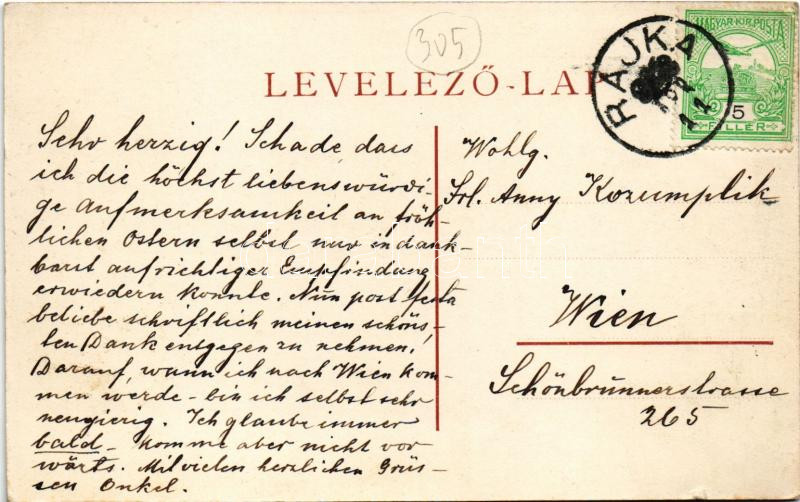 305
LEVELEZŐ-LAP
RAJKA
MAGYAR KIR. POSTA
5
FILLÉR
Sehr herzig! Schade dass
ich die höchst liebenswürdi-
ge Aufmerksamkeit an fröh-
lichen Ostern selbst nur in dank-
barst aufrichtiger Empfindung
erwiedern konnte. Nun post festa
beliebe schriftlich meinen schöns-
ten Dank entgegen zu nehmen!
Darauf, wann ich nach Wien kom-
men werde - bin ich selbst sehr
neugierig. Ich glaube immer
bald - komme aber nicht vor
wärts. Mit vielen herzlichen Grüs-
sen Onkel.
Wohlg.
Frl. Anny Kozumplik
Wien
Schönbrunnerstrasse
265